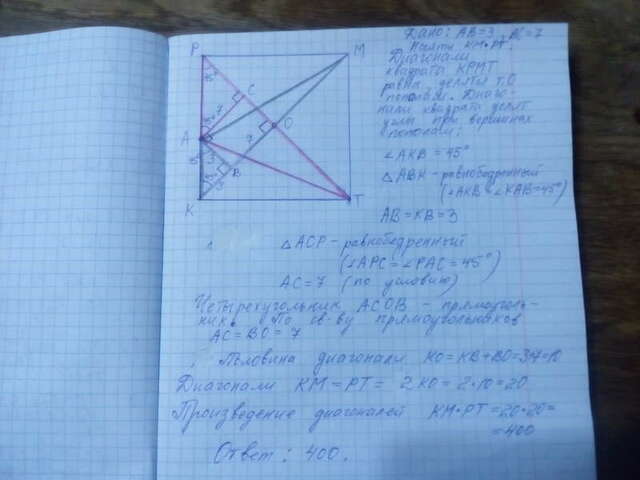 Дано: AB=3, AC=7
Найти KM·PT.
Диагонали
квадрата KPMT
равны, делятся т.О
пополам. Диаго-
нали квадрата делят
углы при вершинах
пополам:
∠AKB = 45°
△ABK - равнобедренный
(∠AKB = ∠KAB = 45°)
AB = KB = 3
△ACP - равнобедренный
(∠APC = ∠PAC = 45°)
AC = 7 (по условию)
Четырехугольник ACOB - прямоуголь-
ник. По св-ву прямоугольников
AC = BO = 7
Половина диагонали KO = KB + BO = 3+7 = 10
Диагонали KM = PT = 2KO = 2·10 = 20
Произведение диагоналей KM·PT = 20·20 =
= 400
Ответ: 400.
P
M
C
7
A
O
7
3
B
3
K
T